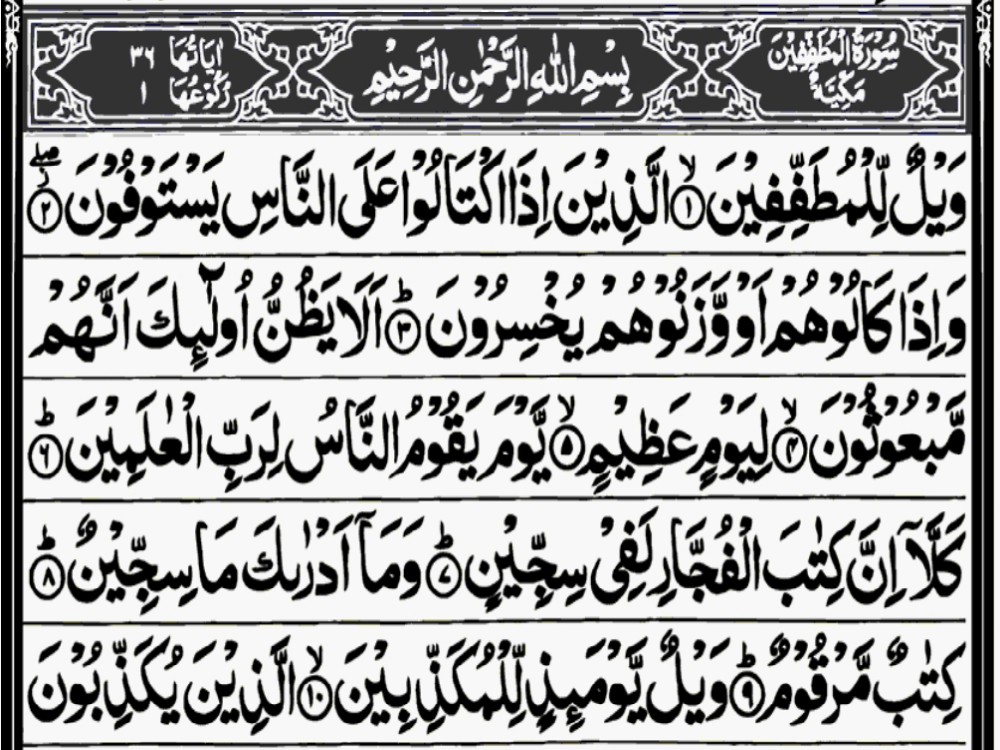 سُوْرَةُ الْمُطَفِّفِيْنَ مَكِّيَّةٌ
بِسْمِ اللّٰهِ الرَّحْمٰنِ الرَّحِيْمِ
اٰيَاتُهَا ٣٦
رُكُوْعُهَا ١
وَيْلٌ لِّلْمُطَفِّفِيْنَ ۙ﴿١﴾ الَّذِيْنَ اِذَا اكْتَالُوْا عَلَى النَّاسِ يَسْتَوْفُوْنَ ۖ﴿٢﴾
وَاِذَا كَالُوْهُمْ اَوْ وَّزَنُوْهُمْ يُخْسِرُوْنَ ؕ﴿٣﴾ اَلَا يَظُنُّ اُولٰٓئِكَ اَنَّهُمْ
مَّبْعُوْثُوْنَ ۙ﴿٤﴾ لِيَوْمٍ عَظِيْمٍ ۙ﴿٥﴾ يَّوْمَ يَقُوْمُ النَّاسُ لِرَبِّ الْعٰلَمِيْنَ ؕ﴿٦﴾
كَلَّاۤ اِنَّ كِتٰبَ الْفُجَّارِ لَفِيْ سِجِّيْنٍ ؕ﴿٧﴾ وَمَاۤ اَدْرٰىكَ مَا سِجِّيْنٌ ؕ﴿٨﴾
كِتٰبٌ مَّرْقُوْمٌ ؕ﴿٩﴾ وَيْلٌ يَّوْمَئِذٍ لِّلْمُكَذِّبِيْنَ ۙ﴿١٠﴾ الَّذِيْنَ يُكَذِّبُوْنَ